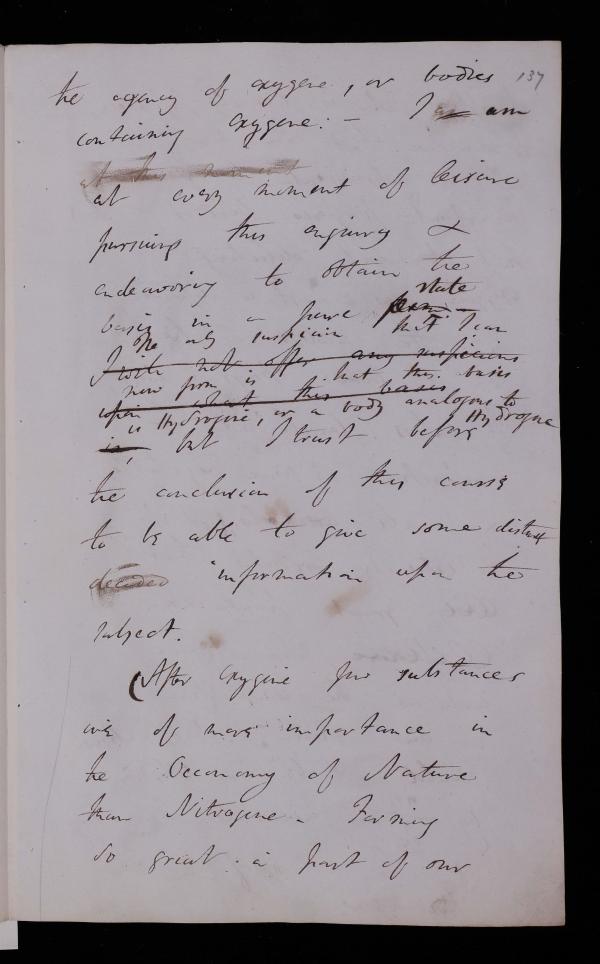 137
the agency of oxygene, or bodies
containing oxygene: - I am
at this moment
at every moment of leisure
pursuing this enquiry &
endeavoring to obtain the
state
basis in a pure form -
The only suspicion that I can
I will not offer any suspicions
now form is that this basis
upon what this basis
is Hydrogene, or a body analogous to Hydrogene
is, but I trust before
the conclusion of this course
to be able to give some distinct
decided information upon the
subject.
(After oxygene few substances
are of more importance in
the Oeconomy of Nature
than Nitrogene - Forming
so great a part of our